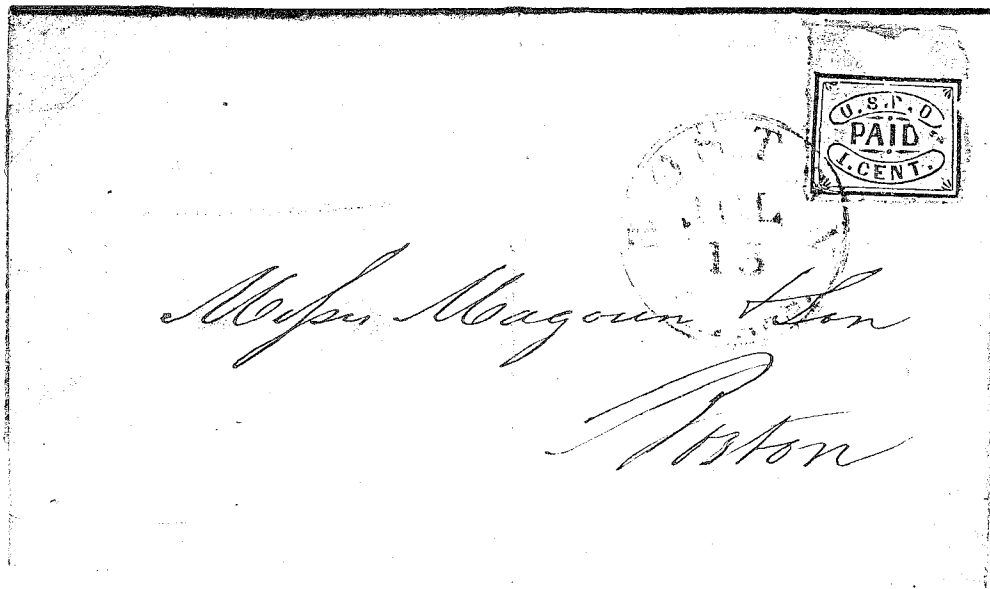 U.S.P.O
PAID
1.CENT.
JUL
15
Messrs Magoun & Son
Boston